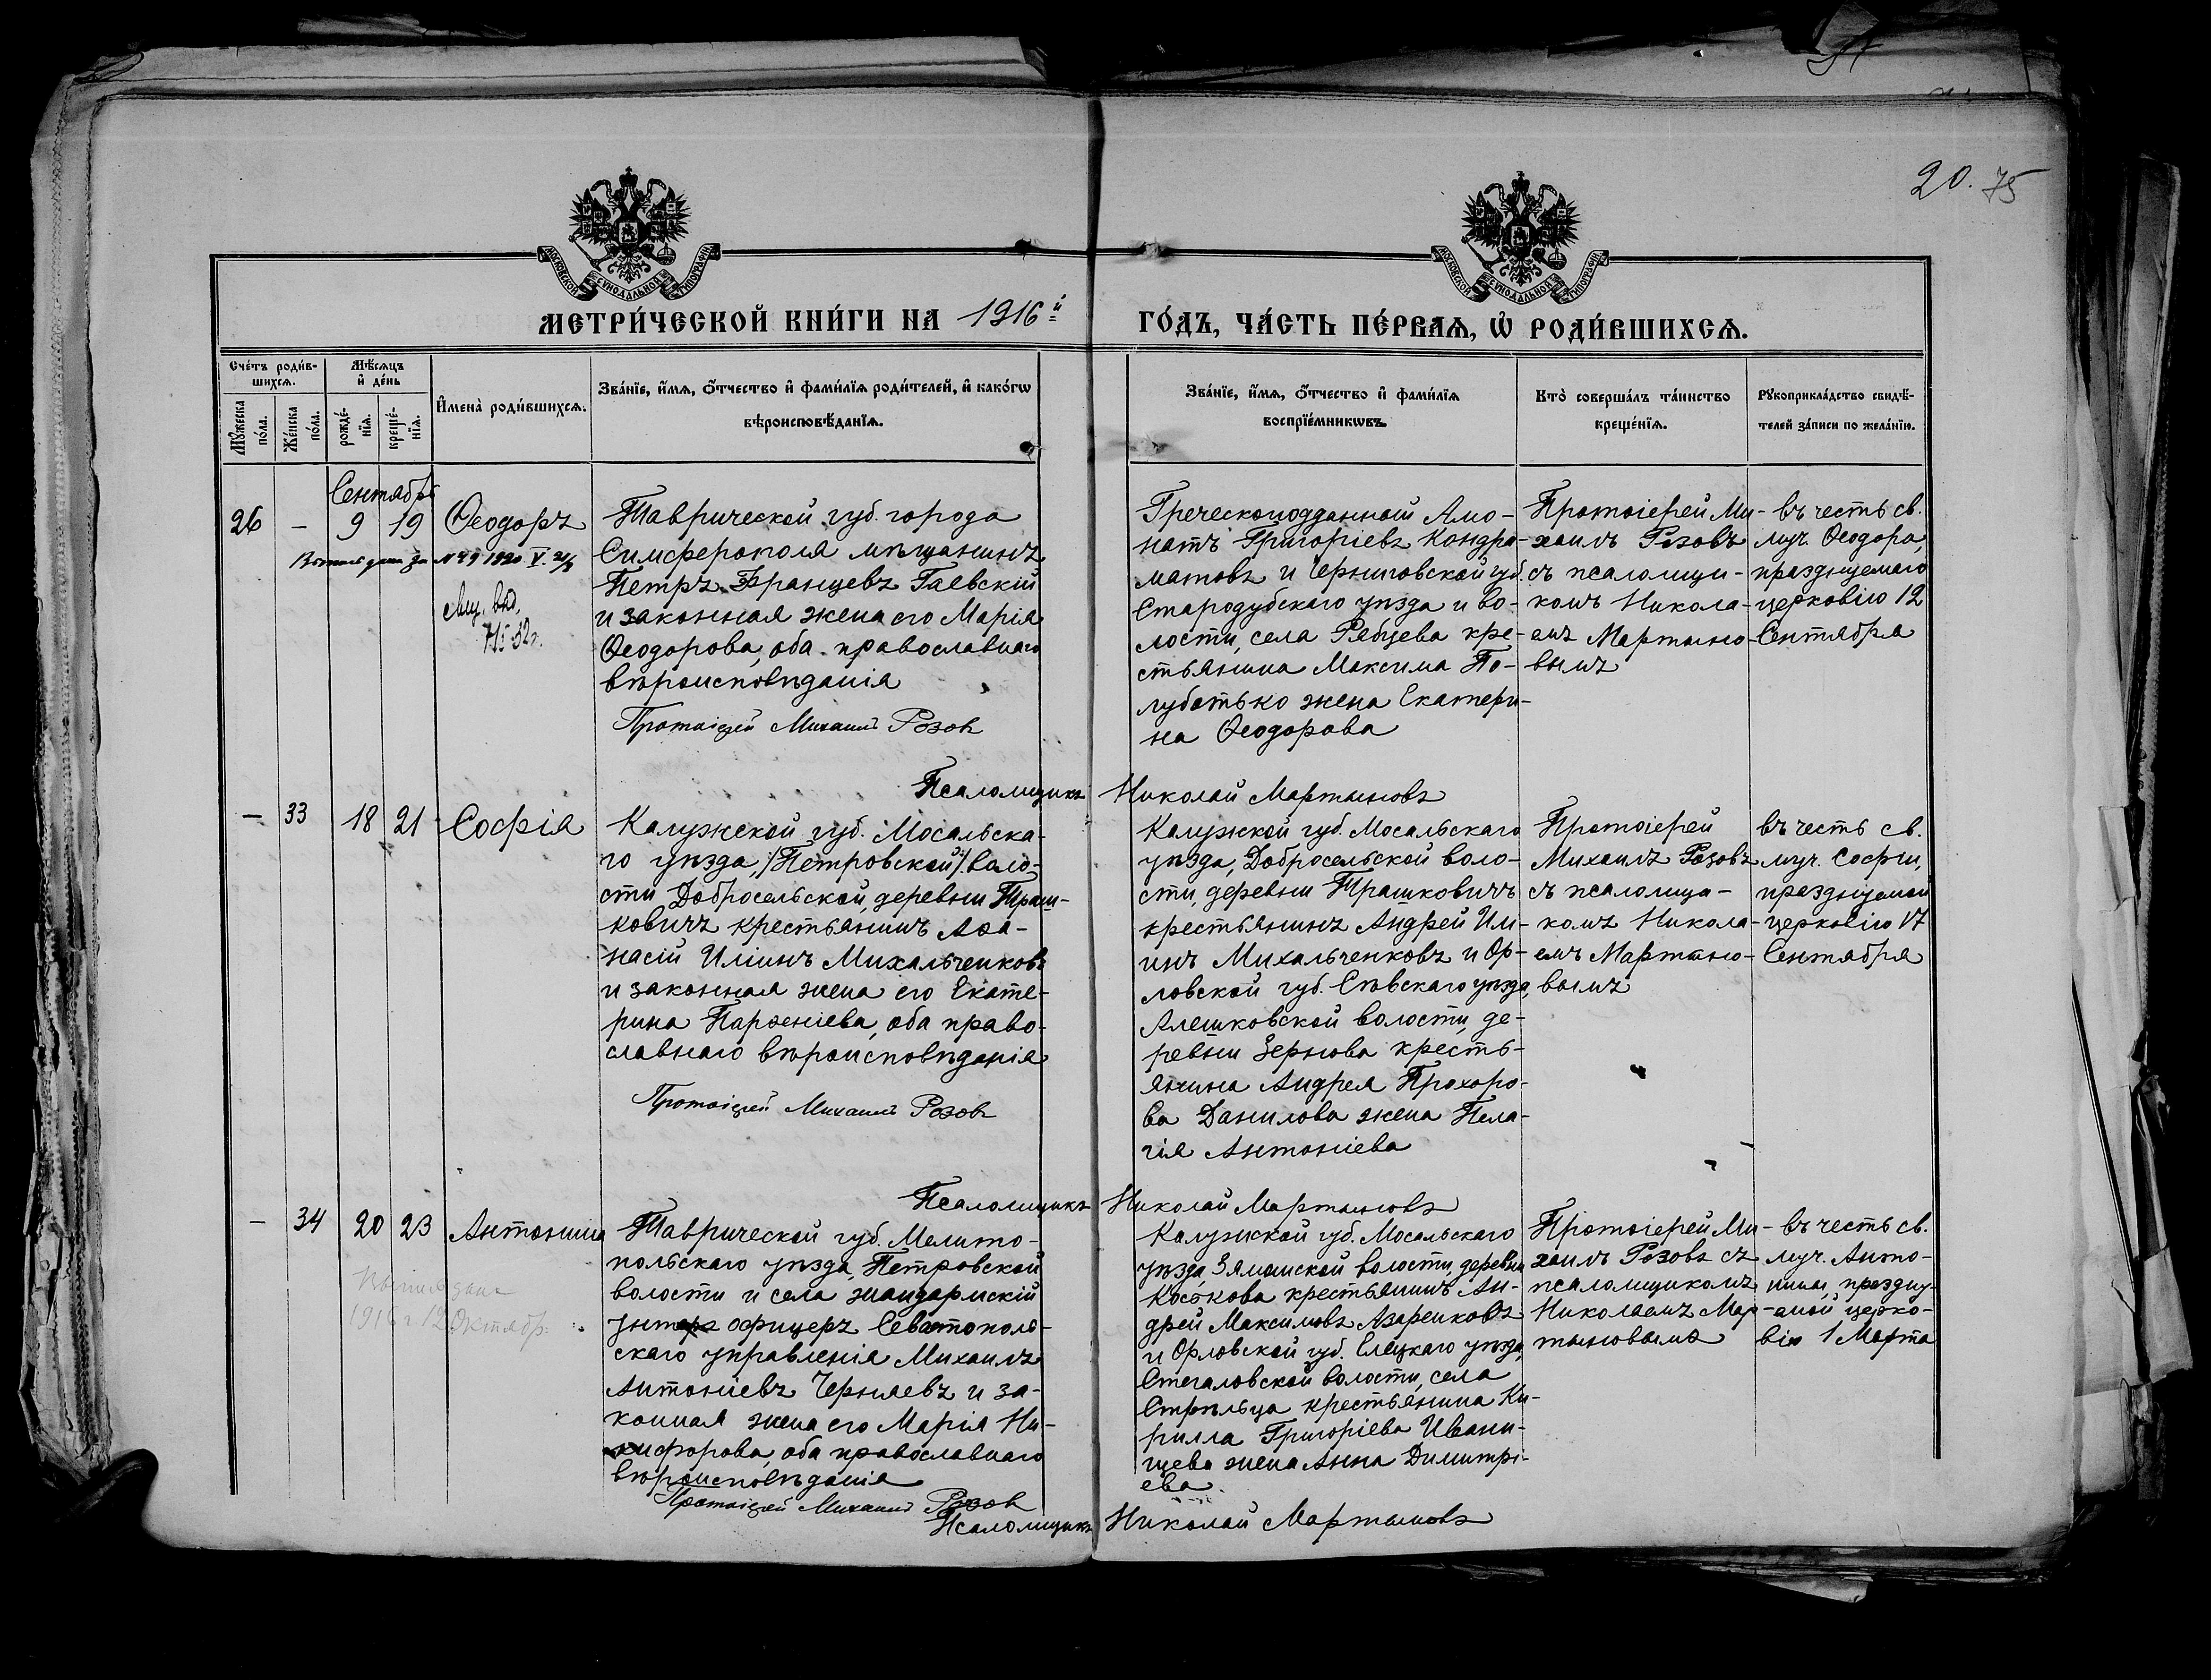 20. 75
МОСКОВСКОЙ СѴНОДАЛЬНОЙ ТИПОГРАФІИ
МОСКОВСКОЙ СѴНОДАЛЬНОЙ ТИПОГРАФІИ
МЕТРИ́ЧЕСКОЙ КНИ́ГИ НА 1916й ГО́ДЪ, ЧА́СТЬ ПЕ́РВАѦ, Ѡ҆ РОДИ́ВШИХСѦ.
Сче́тъ роди́в-
шихсѧ.
Мꙋ́жеска
по́ла.
Же́нска
по́ла.
Мѣ́сѧцъ
и҆ де́нь
рожде́-
нїѧ.
креще́-
нїѧ.
И҆мена̀ роди́вшихсѧ.
Зва́нїе, и҆́мѧ, ѻ҆́тчество и҆ фами́лїѧ роди́телей, и҆ како́гѡ
вѣроисповѣ́данїѧ.
Зва́нїе, и҆́мѧ, ѻ҆́тчество и҆ фами́лїѧ
воспрїе́мникѡвъ.
Кто̀ соверша́лъ та́инство
креще́нїѧ.
Рꙋкоприкла́дство свидѣ́-
телей за́писи по жела́нїю.
Сентябрь
26 — 9 19 Ѳеодоръ
1920 V. 21/8
715
Таврической губ. города
Симферополя мѣщанинъ
Петръ Францевъ Гаевскій
и законная жена его Марія
Ѳеодорова, оба православнаго
вѣроисповѣданія
Протоіерей Михаилъ Розовъ
Греческоподданный
Григоріевъ Кондра-
матовъ и Черниговской губ.
Стародубскаго уѣзда и во-
лости, села Рябцева кре-
стьянина Максима По-
луботько жена Екатери-
на Ѳеодорова
Протоіерей Ми-
хаилъ Розовъ
съ псаломщи-
комъ Никола-
емъ Мартыно-
вымъ
въ честь св.
муч. Ѳеодора,
празднуемаго
церковію 12
Сентября
Псаломщикъ Николай Мартыновъ
— 33 18 21 Софія
Калужской губ. Мосальска-
го уѣзда, /Петровской/ воло-
сти Добросельской, деревни Траш-
ковичъ крестьянинъ Аѳа-
насій Иліинъ Михальченковъ
и законная жена его Екате-
рина Парѳеніева, оба право-
славнаго вѣроисповѣданія
Протоіерей Михаилъ Розовъ
Калужской губ. Мосальскаго
уѣзда, Добросельской воло-
сти, деревни Трашковичъ
крестьянинъ Андрей Или-
инъ Михальченковъ и Ор-
ловской губ. Сѣвскаго уѣзда,
Алешковской волости, де-
ревни Зернова кресть-
янина Андрея Прохоро-
ва Данилова жена Пела-
гія Антоніева
Протоіерей
Михаилъ Розовъ
съ псаломщи-
комъ Никола-
емъ Мартыно-
вымъ
въ честь св.
муч. Софіи,
празднуемой
церковію 17
Сентября
Псаломщикъ Николай Мартыновъ
— 34 20 23 Антонина
Выпись дана
1916 г. 12 Октябр.
Таврической губ. Мелито-
польскаго уѣзда, Петровской
волости и села жандармскій
унтеръ офицеръ Севастополь-
скаго управленія Михаилъ
Антоніевъ Черняевъ и за-
конная жена его Марія Ни-
кифорова, оба православнаго
вѣроисповѣданія
Протоіерей Михаилъ Розовъ
Калужской губ. Мосальскаго
уѣзда, волости, деревни
крестьянинъ Ан-
дрей Максимовъ Азаренковъ
и Орловской губ. Елецкаго уѣзда,
Стегаловской волости, села
Стрѣльца крестьянина Ки-
рилла Григоріева Ивани-
щева жена Анна Димитрі-
ева.
Протоіерей Ми-
хаилъ Розовъ съ
псаломщикомъ
Николаемъ Мар-
тыновымъ
въ честь св.
муч. Анто-
нины, праздну-
емой церко-
вію 1 Марта
Псаломщикъ Николай Мартыновъ